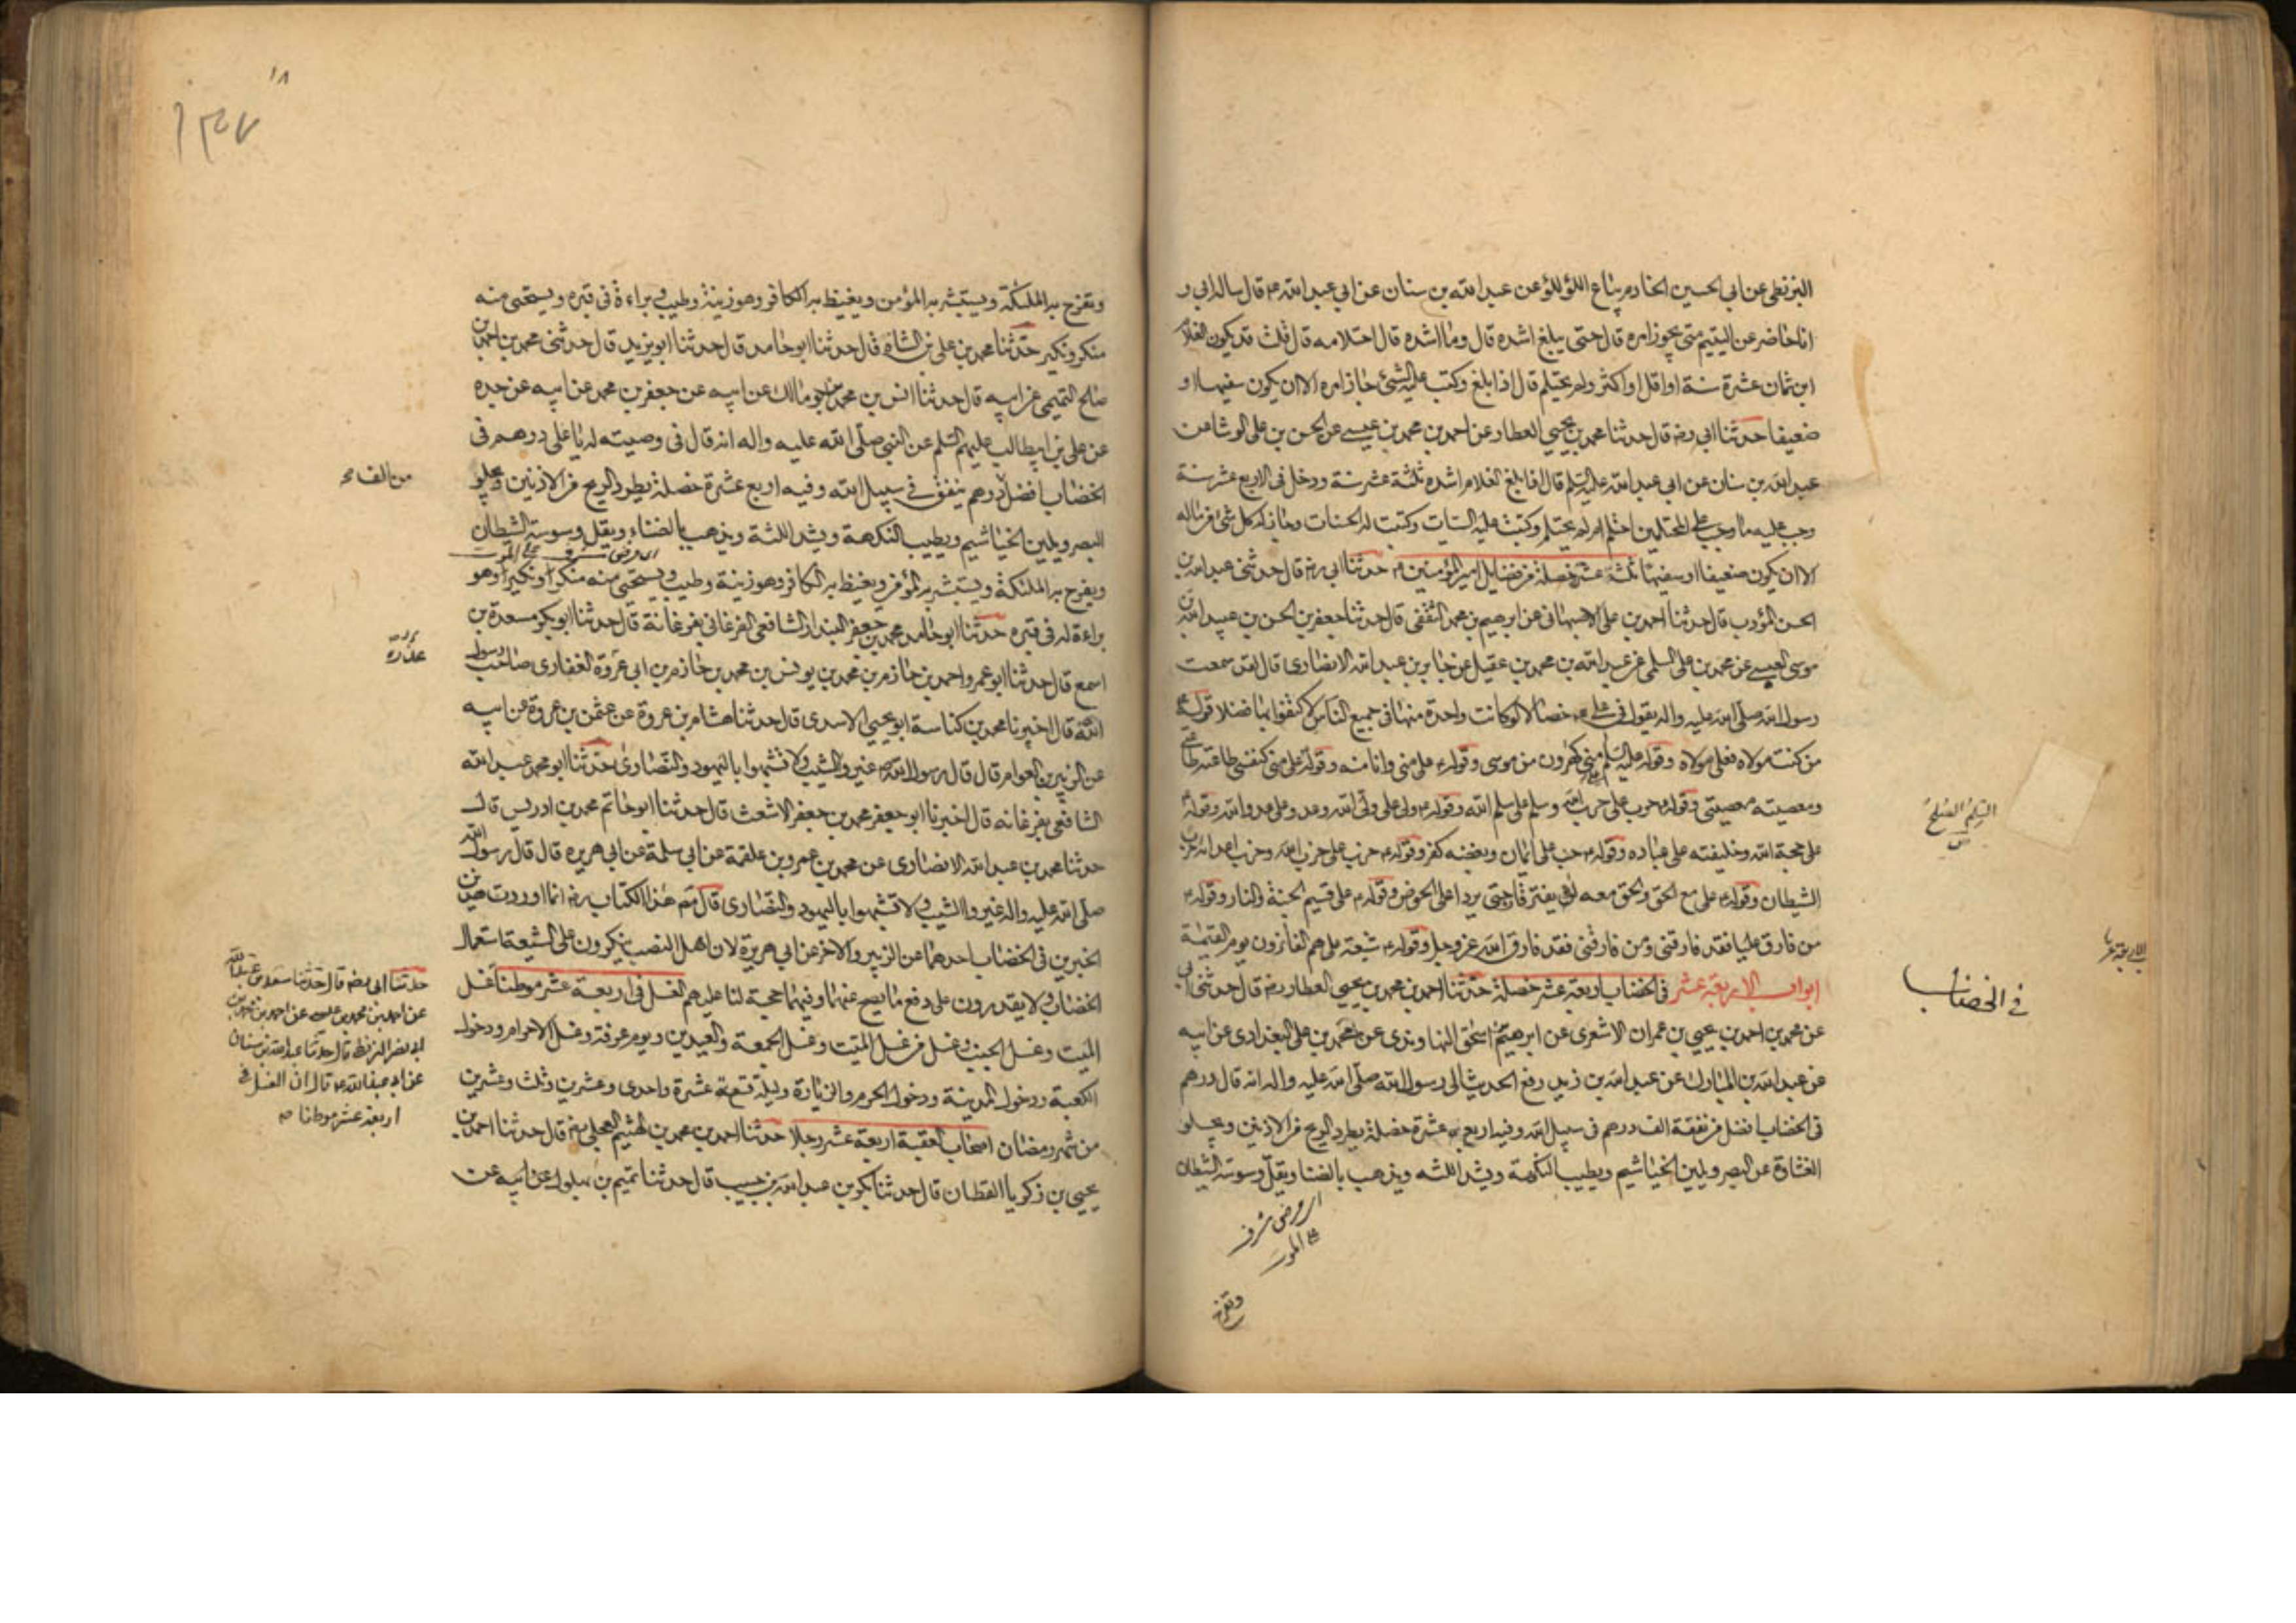 البزنطي عن ابي الحسين الخادم بياع اللؤلؤ عن عبد الله بن سنان عن ابي عبد الله ع قال ساله ابي و
انا حاضر عن اليتيم متى يجوز امره قال حتى يبلغ اشده قال وما اشده قال احتلامه قال قلت قد يكون الغلام
ابن ثمان عشرة سنة او اقل او اكثر ولم يحتلم قال اذا بلغ وكتب عليه الشئ جاز امره الا ان يكون سفيها او
ضعيفا حدثنا ابي رضه قال حدثنا محمد بن يحيى العطار عن احمد بن محمد بن عيسى عن الحسن بن علي الوشا عن
عبد الله بن سنان عن ابي عبد الله عليه السلم قال اذا بلغ الغلام اشده ثلثة عشر سنة ودخل في الاربع عشر سنة
وجب عليه ما وجب على المحتلمين احتلم ام لم يحتلم وكتبت عليه السيئات وكتبت له الحسنات وجاز له كل شئ من ماله
الا ان يكون ضعيفا او سفيها ثلثة عشر خصلة من فضايل امير المؤمنين ع حدثنا ابي رضه قال حدثني عبد الله بن
الحسن المؤدب قال حدثنا احمد بن علي الاصبهاني عن ابرهيم بن محمد الثقفي قال حدثنا جعفر بن الحسن بن عبيد الله بن
موسى العبسي عن محمد بن علي السلمي عن عبد الله بن محمد بن عقيل عن جابر بن عبد الله الانصاري قال لقد سمعت
رسول الله صلى الله عليه واله يقول في علي ع خصالا لو كانت واحدة منها في جميع الناس لاكتفوا بها فضلا قوله ع
من كنت مولاه فعلي مولاه وقوله عليه السلم علي مني كهرون من موسى وقوله ع علي مني وانا منه وقوله علي مني كنفسي طاعته طاعتي
ومعصيته معصيتي وقوله ع حرب علي حرب الله وسلم علي سلم الله وقوله ع ولي علي ولي الله وعدو علي عدو الله وقوله ع
علي حجة الله وخليفته على عباده وقوله ع حب علي ايمان وبغضه كفر وقوله ع حزب علي حزب الله وحزب اعدائه حزب
الشيطان وقوله ع علي مع الحق والحق معه لن يفترقا حتى يردا على الحوض وقوله ع علي قسيم الجنة والنار وقوله ع
من فارق عليا فقد فارقني ومن فارقني فقد فارق الله عز وجل وقوله ع شيعة علي هم الفائزون يوم القيمة
ابواب الاربعة عشر في الخضاب اربعة عشر خصلة حدثنا احمد بن محمد بن يحيى العطار رضه قال حدثني ابي
عن محمد بن احمد بن يحيى بن عمران الاشعري عن ابرهيم بن اسحق النهاوندي عن محمد بن علي البغدادي عن ابيه
عن عبد الله بن المبارك عن عبد الله بن زيد رفع الحديث الى رسول الله صلى الله عليه واله انه قال درهم
في الخضاب افضل من نفقة الف درهم في سبيل الله وفيه اربع عشرة خصلة يطرد الريح من الاذنين ويجلو
الغشاوة عن البصر ويلين الخياشيم ويطيب النكهة ويشد اللثه ويذهب بالضنا ويقل وسوسة الشيطان
وتفرح
السلم الصلح
في الخضاب
وتفرح به الملئكة ويستبشر به المؤمن ويغيظ به الكافر وهو زينة وطيب وبراءة في قبره ويستحيي منه
منكر ونكير حدثنا محمد بن علي بن الشاه قال حدثنا ابو حامد قال حدثنا ابو يزيد قال حدثني محمد بن احمد بن
صالح التميمي عن ابيه قال حدثنا انس بن محمد ابو مالك عن ابيه عن جعفر بن محمد عن ابيه عن جده
عن علي بن ابيطالب عليهم السلم عن النبي صلى الله عليه واله انه قال في وصيته له يا علي درهم في
الخضاب افضل درهم ينفق في سبيل الله وفيه اربع عشرة خصلة يطرد الريح من الاذنين ويجلو
البصر ويلين الخياشيم ويطيب النكهة ويشد اللثة ويذهب بالضناء ويقل وسوسة الشيطان
ويفرح به الملئكة ويستبشر به المؤمن ويغيظ به الكافر وهو زينة وطيب ويستحيي منه منكر ونكير وهو
براءة له في قبره حدثنا ابو حامد محمد بن جعفر البندار الشافعي الفرغاني بفرغانة قال حدثنا ابو بكر مسعدة بن
اسمع قال حدثنا ابو عمرو احمد بن حازم بن محمد بن يونس بن محمد بن حازم بن ابي غروة الغفاري صاحب رسول
الله قال اخبرنا محمد بن كناسة ابو يحيى الاسدي قال حدثنا هشام بن عروة عن عثمن بن عروة عن ابيه
عن الزبير بن العوام قال قال رسول الله ص غيروا الشيب ولا تشبهوا باليهود والنصارى حدثنا ابو محمد عبد الله
الشافعي بفرغانه قال اخبرنا ابو جعفر محمد بن جعفر الاشعث قال حدثنا ابو حاتم محمد بن ادريس قال
حدثنا محمد بن عبد الله الانصاري عن محمد بن عمرو بن علقمة عن ابي سلمة عن ابي هريره قال قال رسول الله
صلى الله عليه واله غيروا الشيب ولا تشبهوا باليهود والنصارى قال مص هذا الكتاب رضه انما اوردت هذين
الخبرين في الخضاب احدهما عن الزبير والاخر عن ابي هريرة لان اهل النصب ينكرون على الشيعة استعمال
الخضاب ولا يقدرون على دفع ما يصح عنهما وفيهما حجة لنا عليهم الغسل في اربعة عشر موطنا غسل
الميت وغسل الجنب وغسل من غسل الميت وغسل الجمعة والعيدين ويوم عرفة وغسل الاحرام ودخول
الكعبة ودخول المدينة ودخول الحرم والزيارة وليلة تسع عشرة واحدى وعشرين وثلث وعشرين
من شهر رمضان اصحاب العقبة اربعة عشر رجلا حدثنا احمد بن محمد بن الهيثم العجلي رضه قال حدثنا احمد بن
يحيى بن زكريا القطان قال حدثنا بكر بن عبد الله بن حبيب قال حدثنا تميم بن بهلول عن ابيه عن
حدثنا ابي رضه قال حدثنا سعد بن عبد الله
عن احمد بن محمد بن عيسى عن احمد بن محمد بن
ابي نصر البزنطي قال حدثنا عبد الله بن سنان
عن ابي عبد الله ع قال ان الغسل في
اربعة عشر موطنا